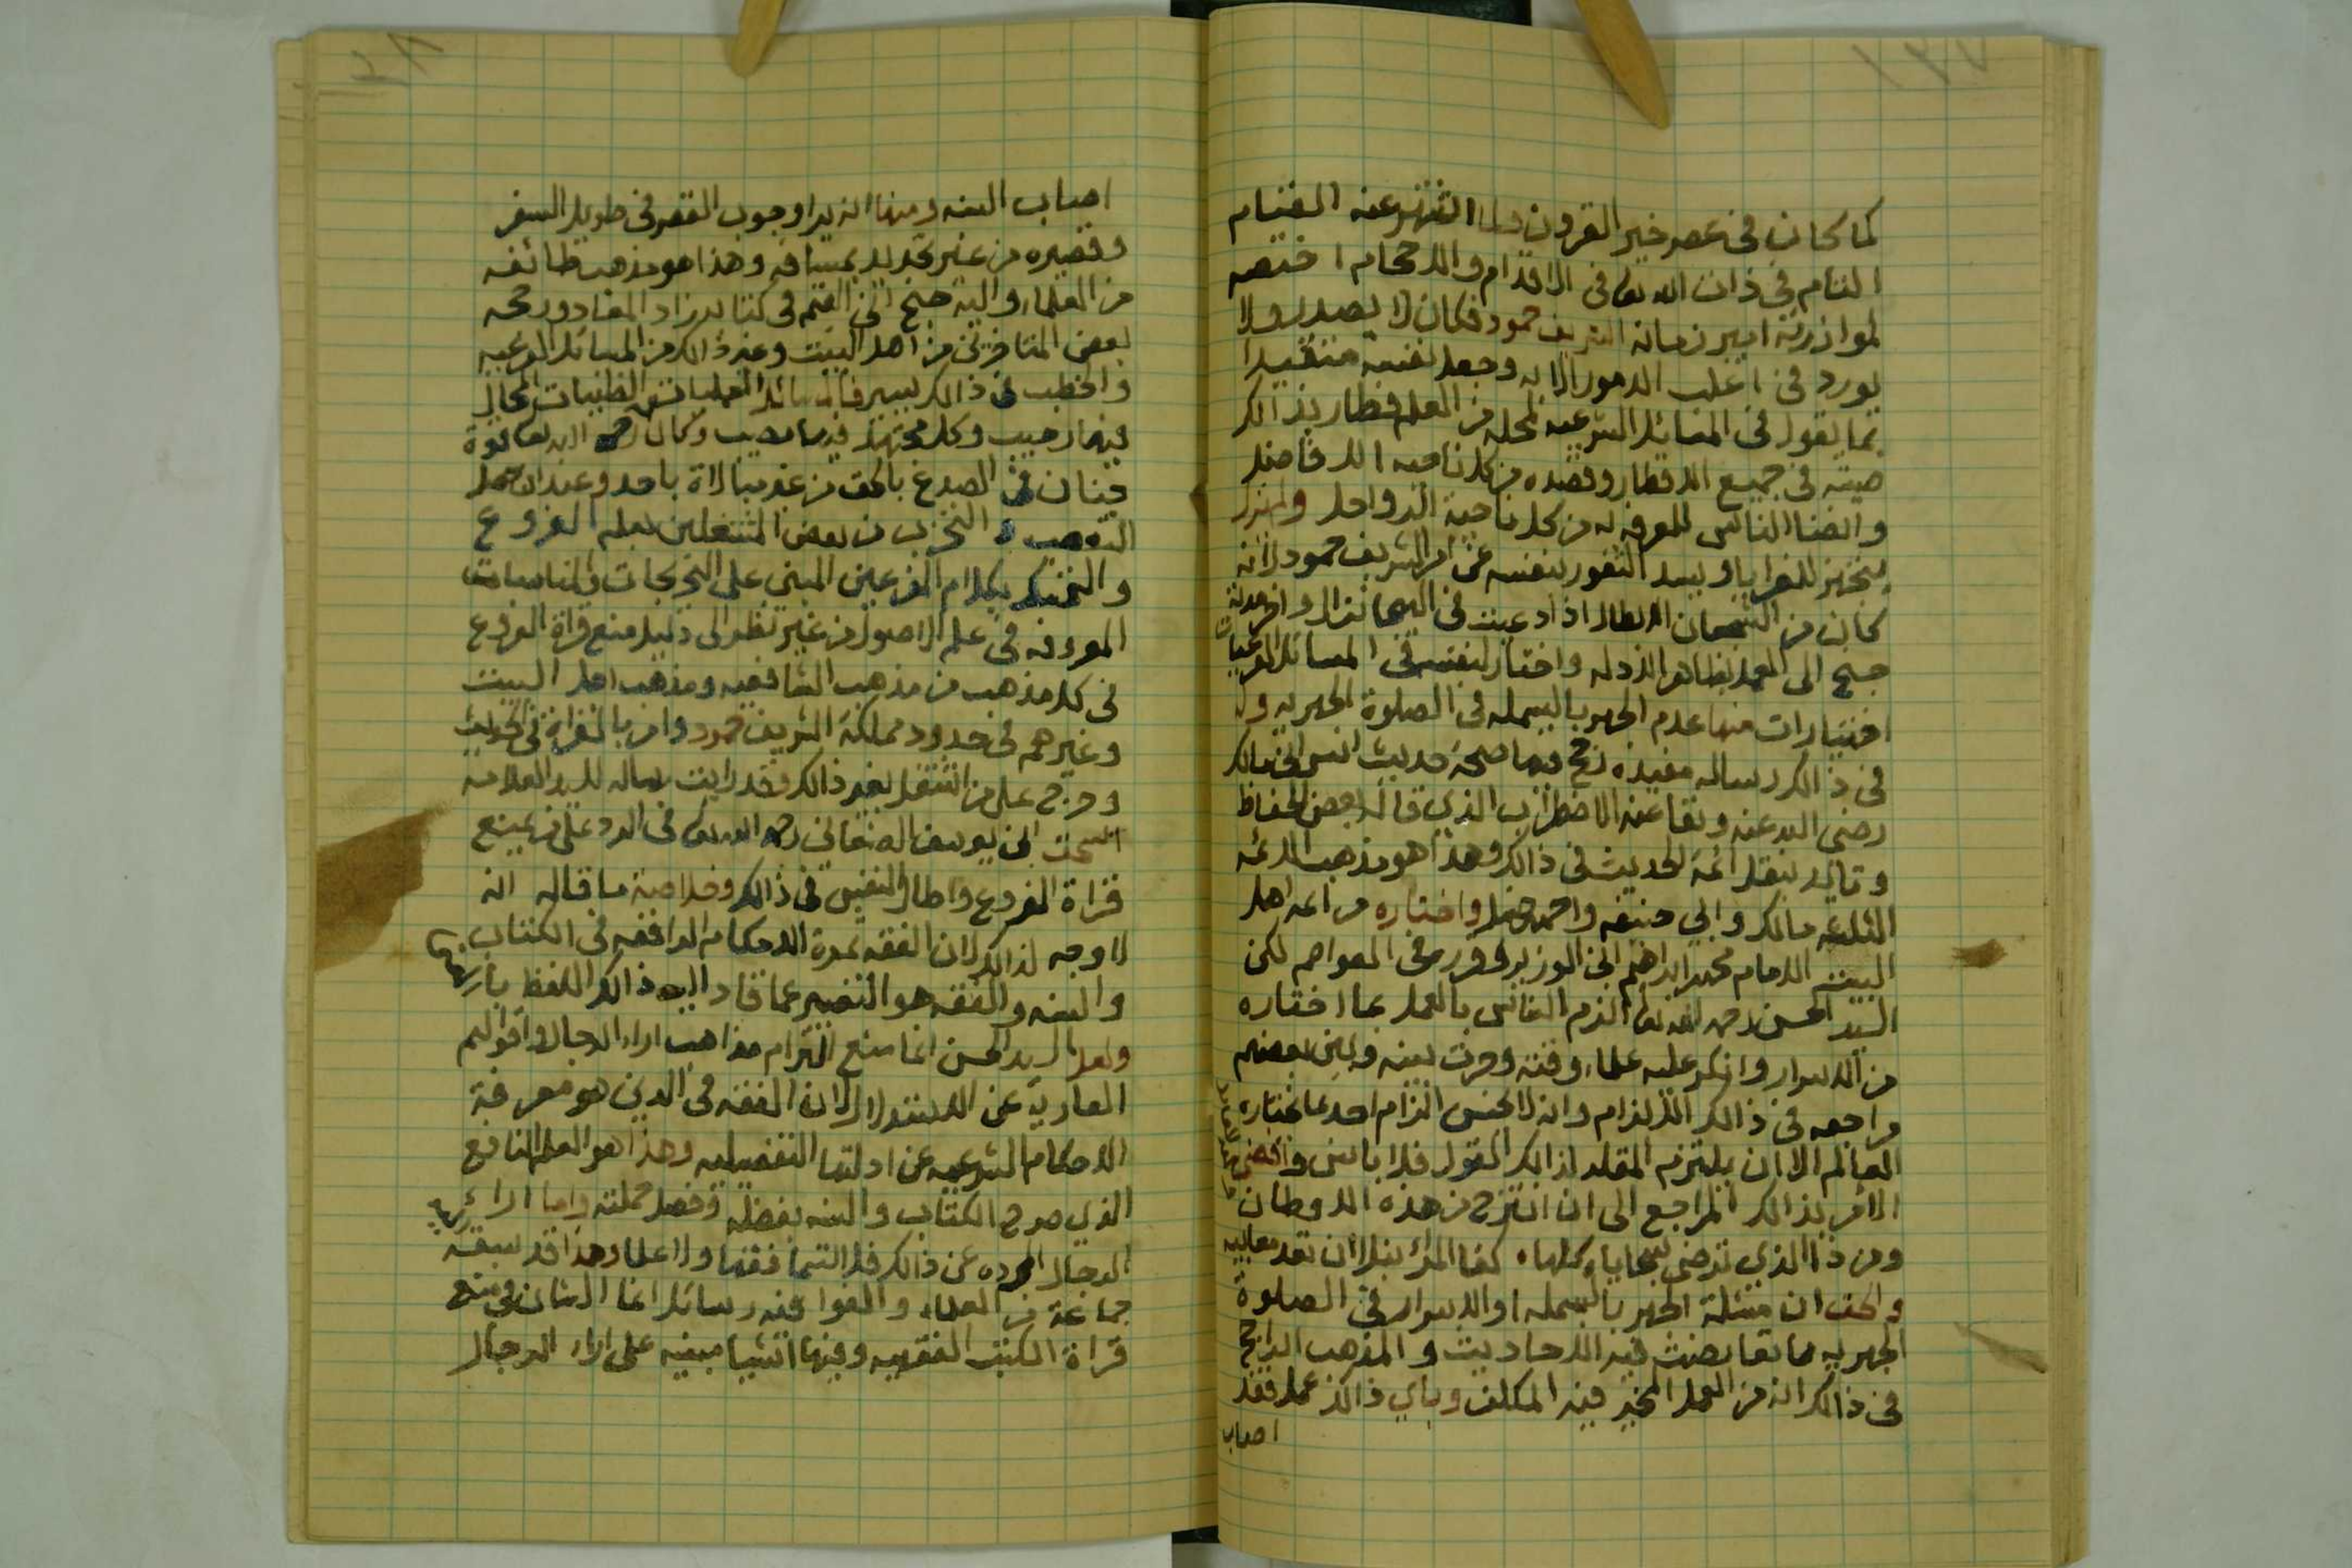 ١٣٧
كما كان في عصر خير القرون ولما اشتهر عنه القيام
التام في ذات الله تعالى في الاقدام والاحجام اختصه
لموازرته امير زمانه الشريف حمود فكان لا يصدر ولا
يورد في اغلب الامور الا به وجعل نفسه متقيدا
بما يقول في المسائل الشرعيه لمحله من العلم فطار بذالك
صيته في جميع الاقطار وقصده من كل ناحيه الافاضل
وانضا الناس للمعرفه له من كل ناحية الرواحل
بتجهيز للغزايا ويسد الثغور بنفسه عن امر الشريف حمود لانه
كان من الشجعان الابطال اذا دعيت في الهيجا نزال
جنح الى العمل بظاهر الادله واختار لنفسه في المسائل الفرعيات
اختيارات منها عدم الجهر بالبسمله في الصلوة الجهريه وله
في ذالك رساله مفيده رجح فيها صحة حديث انس ابن مالك
رضي الله عنه ونفا عنه الاضطراب الذي قاله بعض الحفاظ
وتايد بنقل ائمة الحديث في ذالك وهذا هو مذهب الائمه
الثلاثه مالك وابي حنيفه واحمد حنبل واختاره من ائمه اهل
البيت الامام محمد ابراهيم ابن الوزير وقرره في العواصم لكن
السيد الحسن رحمه الله تعالى الزم الناس بالعمل بما اختاره
من الاسرار وانكر عليه علماء وقته وجرت بينه وبين بعضهم
مراجعه في ذالك الالزام وانه لا يحسن الزام احد بما يختاره
العالم الا ان يلتزم المقلد لذالك القول فلا باس وافضى
الامر بذالك المراجع الى ان انتزح من هذه الاوطان
ومن ذا الذي ترضى سجاياه كلها كفا المرء نبلا ان تعد معايبه
والحق ان مسئلة الجهر بالبسمله او الاسرار في الصلوة
الجهريه مما تعارضت فيه الاحاديث والمذهب الراجح
في ذالك انه من العمل المخير فيه المكلف وباي ذالك عمل فقد
اصاب
١٣٨
اصاب السنه ومنها انه يرا وجوب القصر في طويل السفر
وقصيره من غير تحديد بمسافه وهذا هو مذهب طائفه
من العلماء واليه جنح ابن القيم في كتابه زاد المعاد ورجحه
بعض المتاخرين من اهل البيت وغير ذالك من المسائل الفرعيه
والخطب في ذالك يسير فالمسائل العمليات الظنيات المجال
فيها رحيب وكل مجتهد فيها مصيب وكان رحمه الله تعالى قوة
جنان في الصدع بالحق من غير مبالاة باحد وعند ان حصل
التعصب والتحزب من بعض المشتغلين بعلم الفروع
والتمسك بكلام المفرعين المبني على التخريجات والمناسبات
المعروفه في علم الاصول من غير نظر الى دليل منع قراة الفروع
في كل مذهب من مذهب الشافعيه ومذهب اهل البيت
وغيرهم في حدود مملكة الشريف حمود وامر بالقراة في الحديث
وحرج على من اشتغل بغير ذالك وقد رايت رساله للسيد العلامه
اسحق ابن يوسف الصنعاني رحمه الله تعالى في الرد على من يمنع
قراة الفروع واطال النفس في ذالك وخلاصة ما قاله انه
لا وجه لذالك لان الفقه ثمرة الاحكام الواقعه في الكتاب
والسنه والفقه هو التفسير عما قاد اليه ذالك اللفظ
ولعل السيد الحسن انما منع التزام مذاهب اراء الرجال واقوالهم
العاريه عن الاستدلال لان الفقه في الدين هو معرفة
الاحكام الشرعيه عن ادلتها التفضيليه وهذا هو العلم النافع
الذي صرح الكتاب والسنه بفضله وفضل حملته واما اراء
الرجال المجرده عن ذالك فلا فقها ولا علما وهذا قد سبقه
جماعة من العلماء والفوا فيه رسائل انما الشان في منع
قراة الكتب الفقهيه وفيها اشيا مبنيه على اراء الرجال